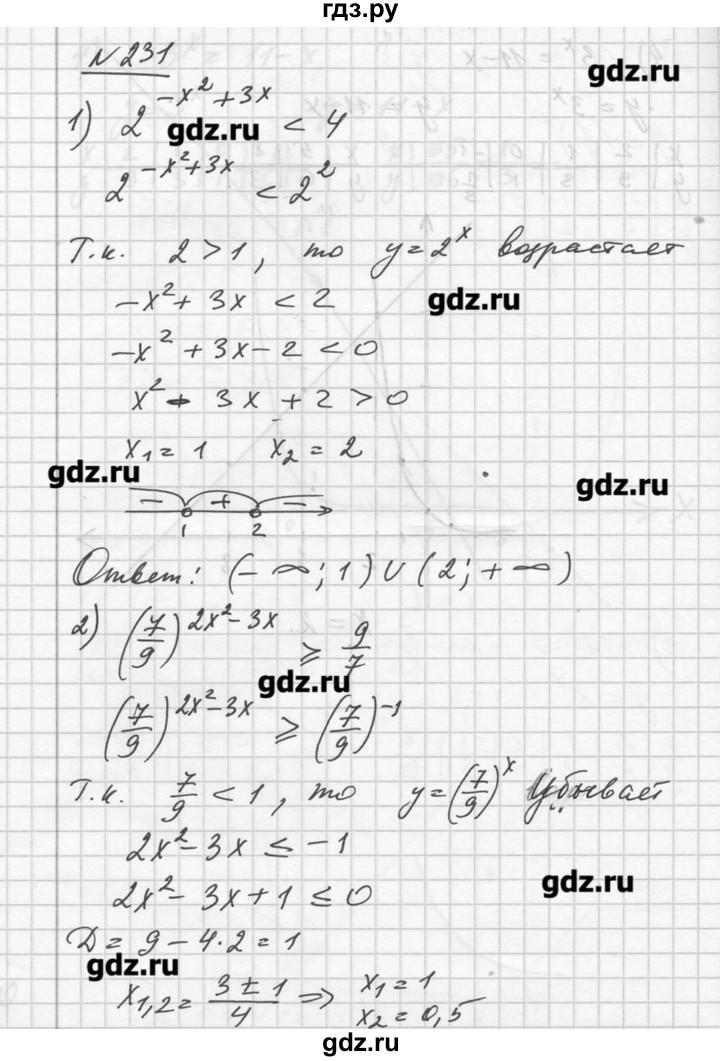 гдз.ру
№ 231
gdz.ru
1) 2^(-x²+3x) < 4
gdz.ru
2^(-x²+3x) < 2²
Т.к. 2 > 1, то y = 2^x возрастает
-x² + 3x < 2
gdz.ru
-x² + 3x - 2 < 0
x² - 3x + 2 > 0
x₁ = 1 x₂ = 2
gdz.ru
gdz.ru
- + -
1 2
Ответ: (-∞; 1) ∪ (2; +∞)
2) (7/9)^(2x²-3x) ⩾ 9/7
gdz.ru
(7/9)^(2x²-3x) ⩾ (7/9)^(-1)
Т.к. 7/9 < 1, то y = (7/9)^x убывает
2x² - 3x ≤ -1
gdz.ru
2x² - 3x + 1 ≤ 0
D = 9 - 4·2 = 1
gdz.ru
x₁,₂ = (3 ± 1)/4 ⇒ x₁ = 1
x₂ = 0,5
gdz.ru